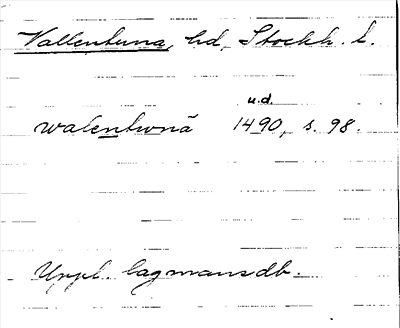 Vallentuna, hd, Stockh. l.
u.d.
walentwnā 1490, s. 98.
Uppl. lagmansdb.